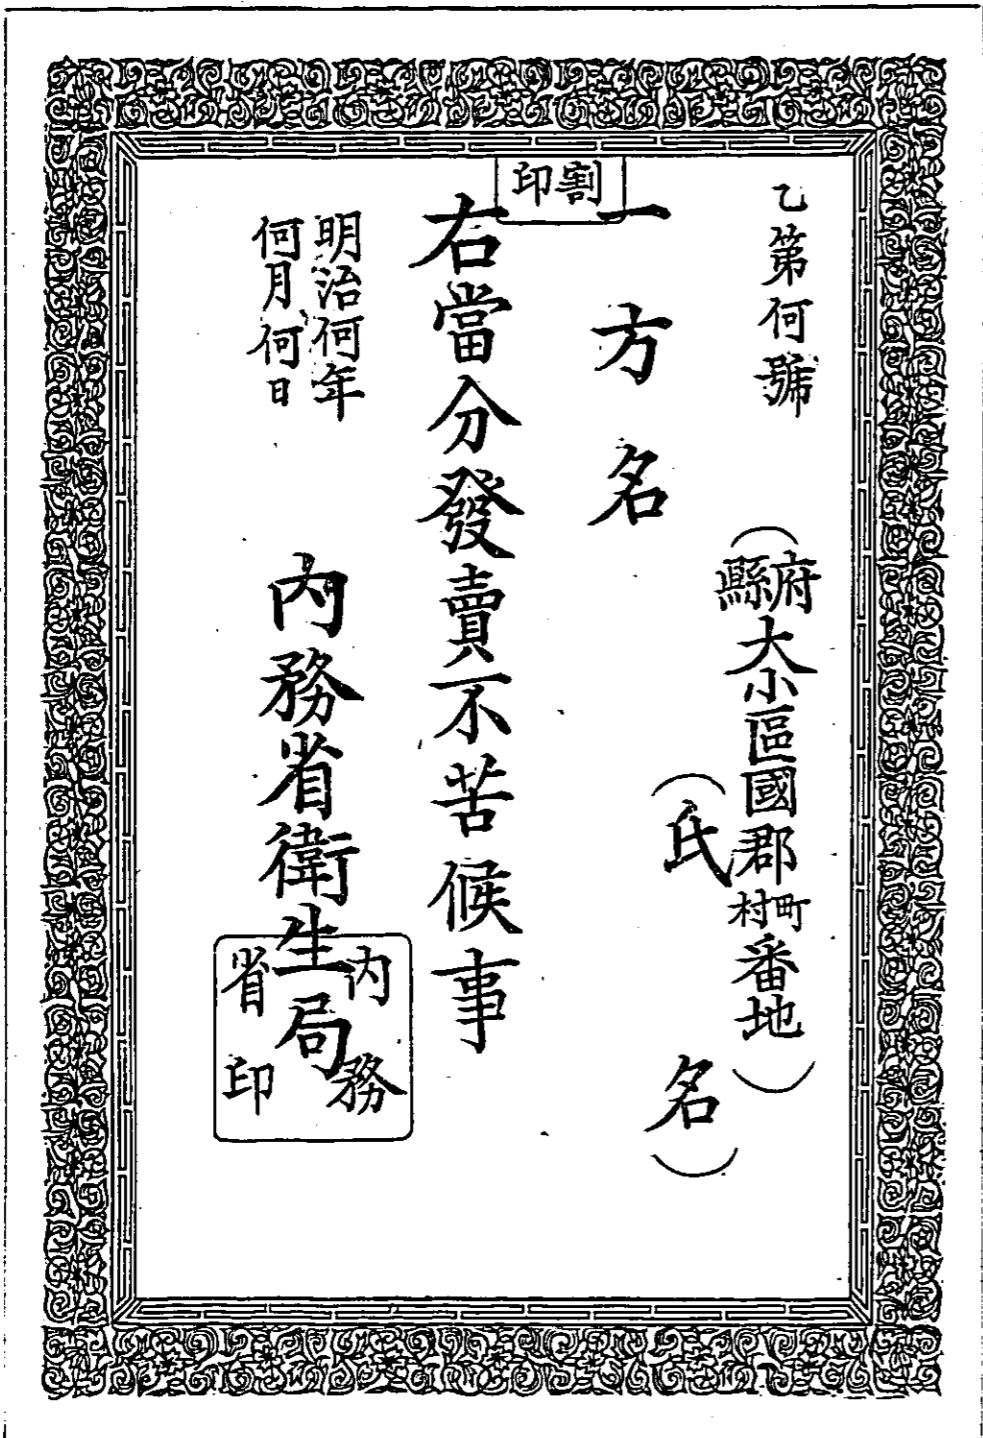 乙第何號
(府縣大小區國郡町村番地)
(氏名)
割印
一方名
右當分發賣不苦候事
明治何年
何月何日
內務省衛生局
內務省印